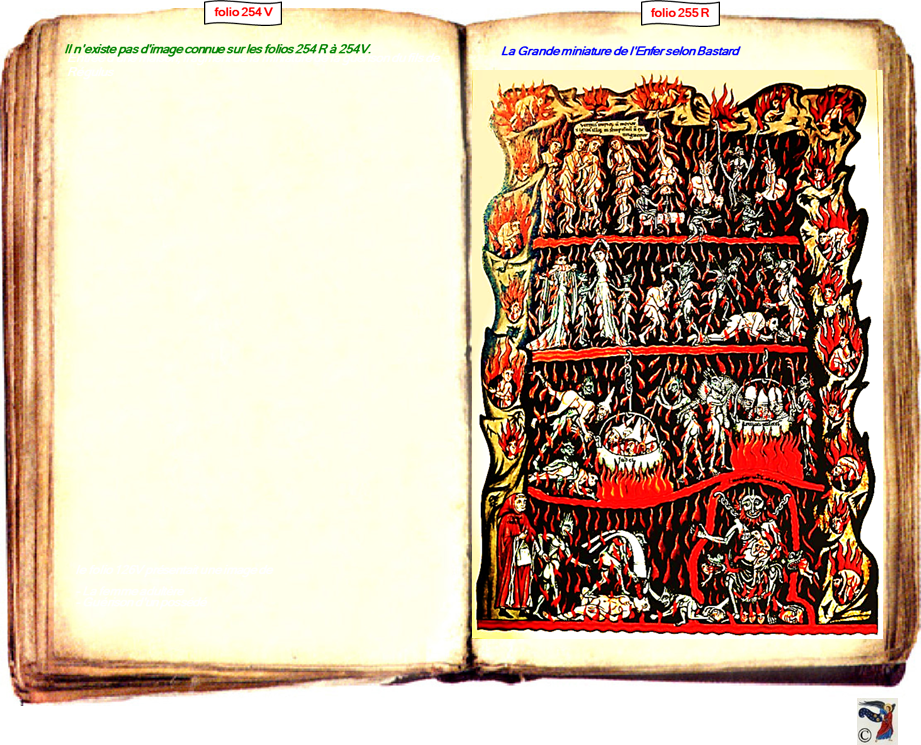 folio 254 V
folio 255 R
Il n'existe pas d'image connue sur les folios 254 R à 254V.
La Grande miniature de l'Enfer selon Bastard
©